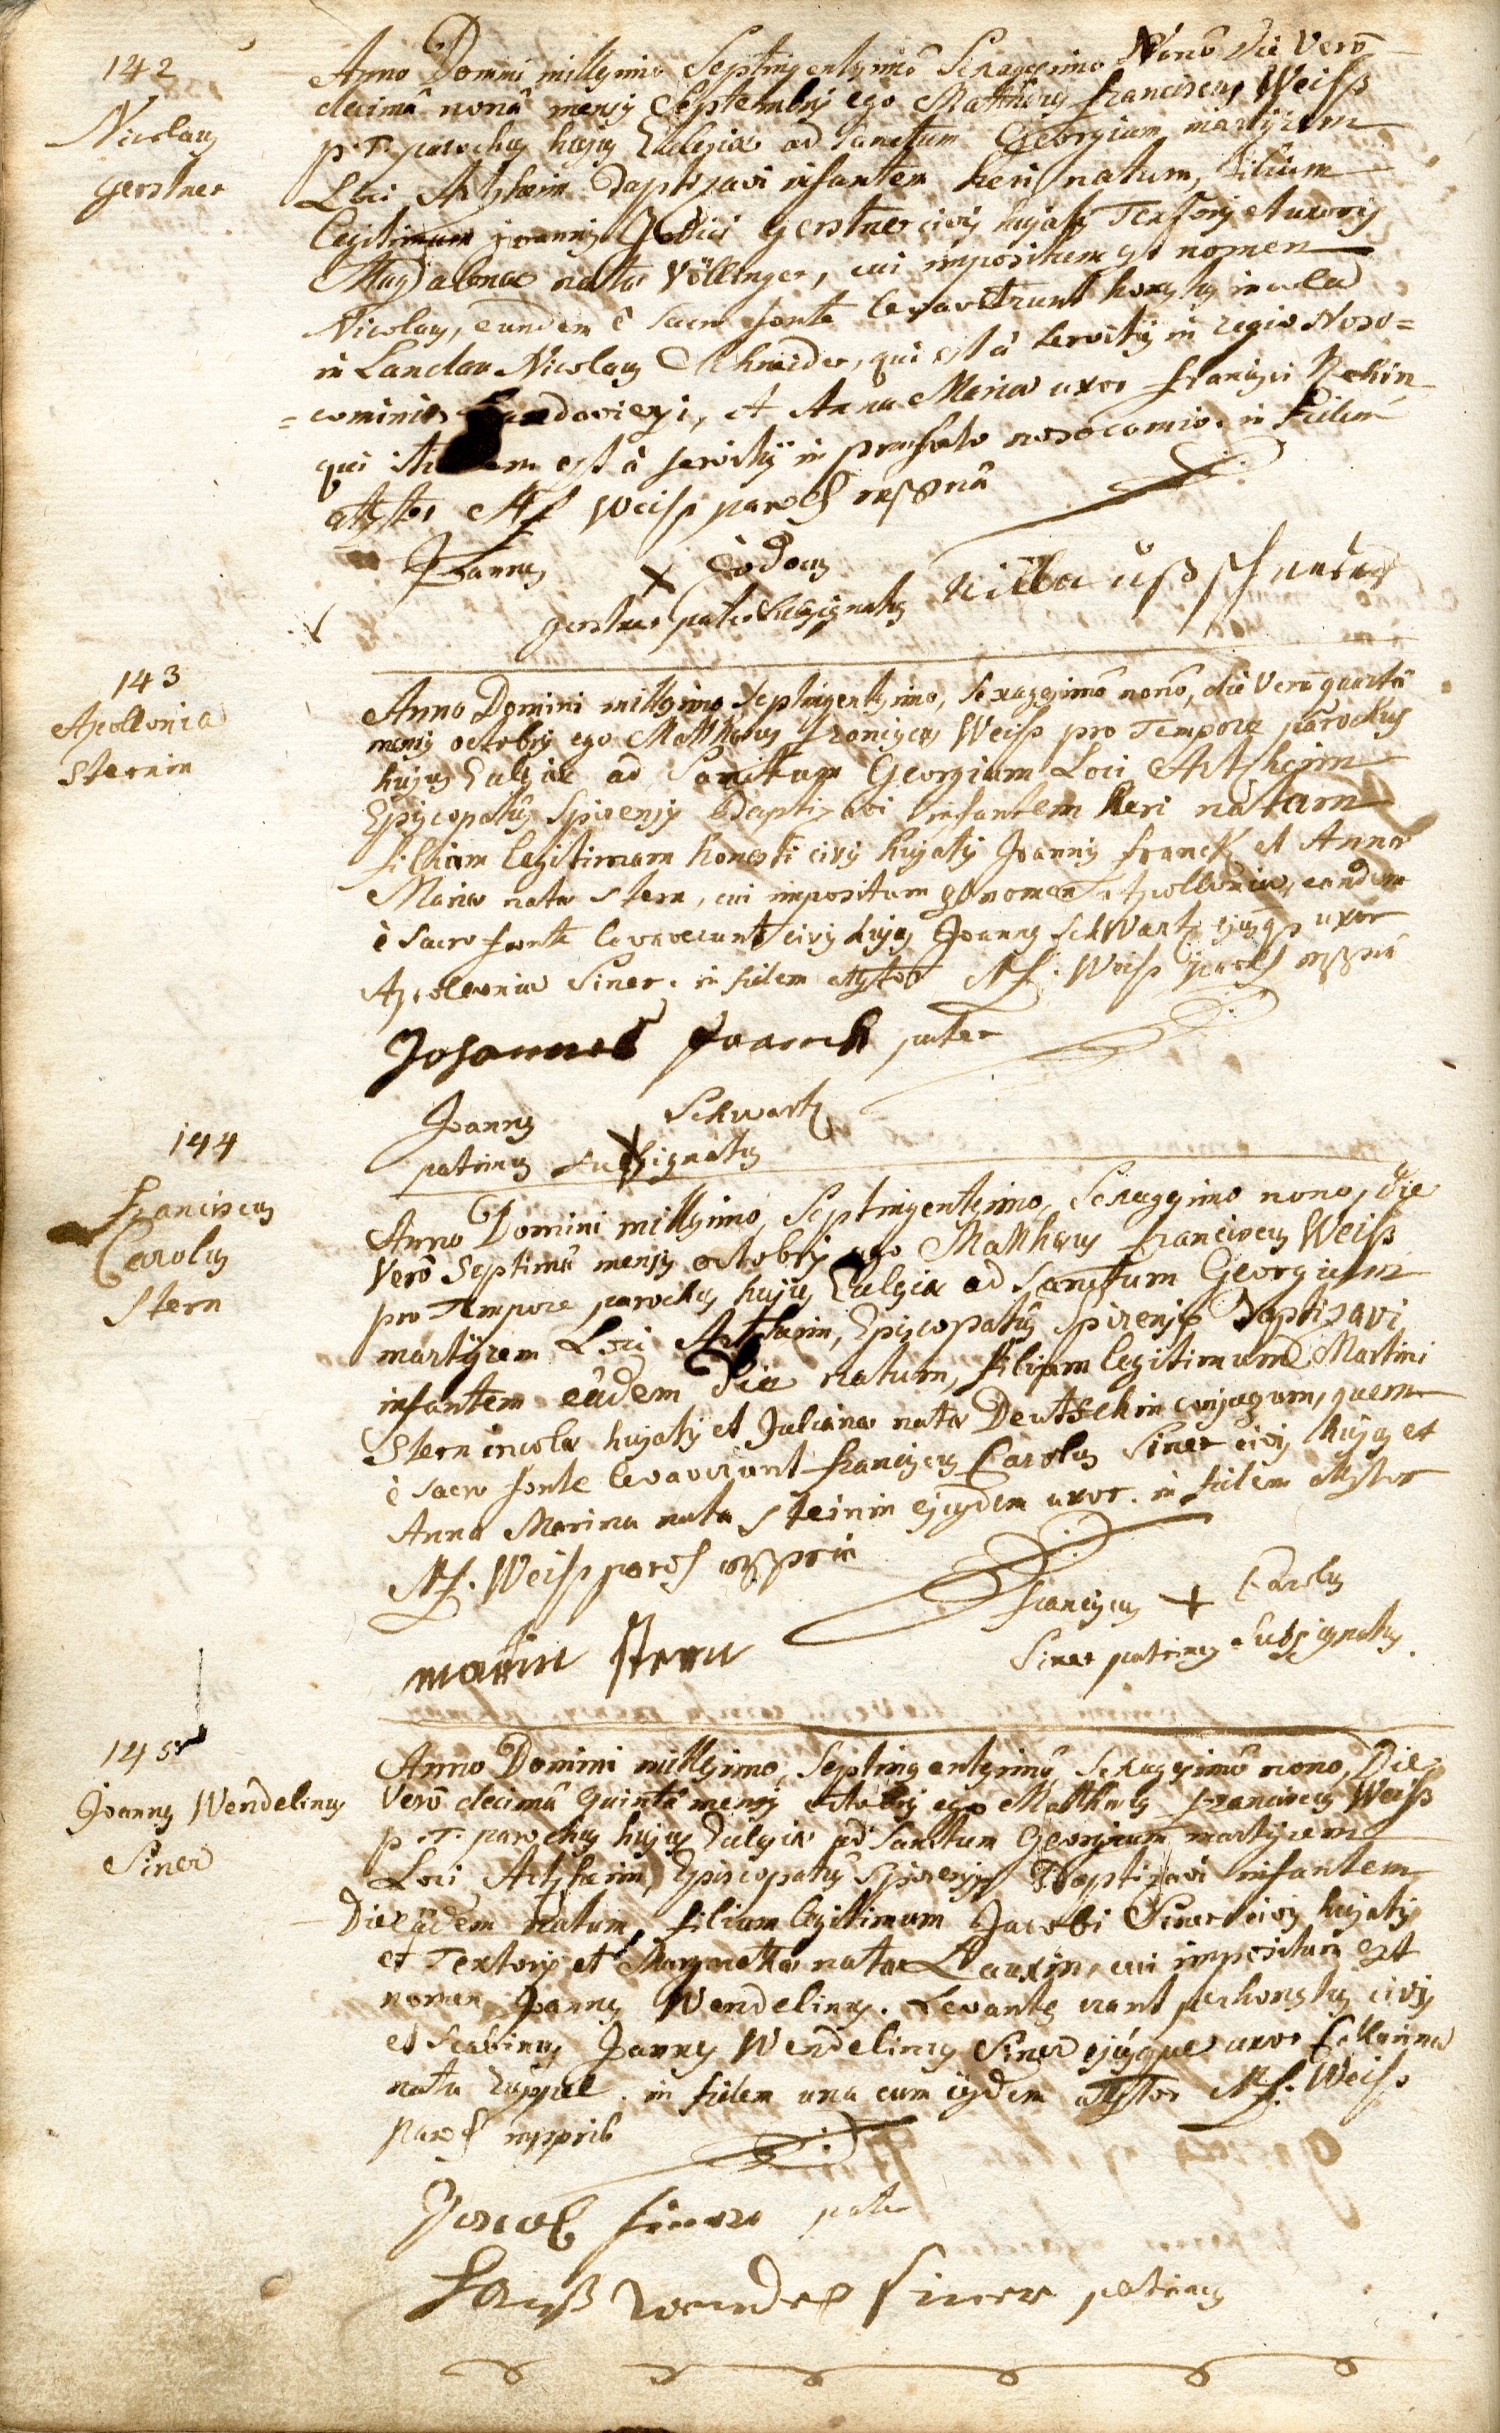 142
Nicolaus
gerstner
Anno Domini millesimo Septingentesimô Sexagesimo Nonô die Verô
decimâ nonâ mensis Septembris ego Matthæus franciscus Weiss
p. T. parochus hujus Ecclesiæ ad sanctum Georgium martÿrem
Loci Artzheim Baptizavi infantem heri natum, filium
legitimum joannis Jodici gerstner civis hujatis Textoris et uxoris
Magdalenæ natæ Völlinger, cui impositum est nomen
Nicolaus, eundem è sacro fonte levaverunt honestus incola
in Landau Nicolaus Schneider, qui est à servitiis in regio Noso=
=comio Landaviensi, et Anna Maria uxor francisci
qui itidem est à servitiis in præfato nosocomio. in fidem
attestor Mf Weiss paroch mppriâ
Joannes + Jodocus
gerstner pater subsignatus
143
Apollonia
Sternin
Anno Domini millesimo, septingentesimo, sexagesimô nonô, die Verô quartâ
mensis octobris ego Matthæus franciscus Weiss pro Tempore parochus
hujus Ecclesiæ ad Sanctum Georgium Loci Artzheim
Episcopatûs Spirensis Baptizavi infantem heri natam
filiam legitimam honesti civis hujatis Joannis franck et Annæ
Mariæ natæ Stern, cui impositum est nomen Apollonia, eandem
è sacro fonte levaverunt civis hujas Joannes Schwartz ejusque uxor
Apollonia Siner. in fidem attestor Mf. Weiss paroch mppriâ
Johannes franck pater
Joannes + Schwartz
patrinus subsignatus
144
franciscus
Carolus
Stern
Anno Domini millesimo, Septingentesimo, Sexagesimo nono, die
Verô Septimâ mensis octobris ego Matthæus franciscus Weiss
pro Tempore parochus hujus Ecclesiæ ad sanctum Georgium
martÿrem Loci Artzheim, Episcopatûs Spirensis Baptizavi
infantem eâdem die natum, filium legitimum Martini
Stern incolæ hujatis et Julianæ natæ Deutschin conjugum, quem
è sacro fonte levaverunt franciscus Carolus Siner civis hujas et
Anna Marina nata Steinin ejusdem uxor. in fidem attestor
Mf. Weiss paroch mppriâ
franciscus + Carolus
Siner patrinus subsignatus.
martin Stern
145
Joannes Wendelinus
Siner
Anno Domini millesimo, Septingentesimô, Sexagesimô nono, Die
Verô decimâ quintâ mensis octobris ego Matthæus franciscus Weiss
p. T. parochus hujus Ecclesiæ ad Sanctum Georgium martÿrem
Loci Artzheim, Episcopatûs Spirensis Baptizavi infantem
Die eâdem natum, filium legitimum Jacobi Siner civis hujatis
et Textoris et Margarethæ natæ Lauxin, cui impositum est
nomen Joannes Wendelinus. Levantes erant perhonestus civis
et Scabinus Joannes Wendelinus Siner ejusque uxor Catharina
nata Zuppel. in fidem una cum iisdem attestor Mf. Weiss
paroch mppriâ
Jacob siner pater
Hanss wendel siner patrinus